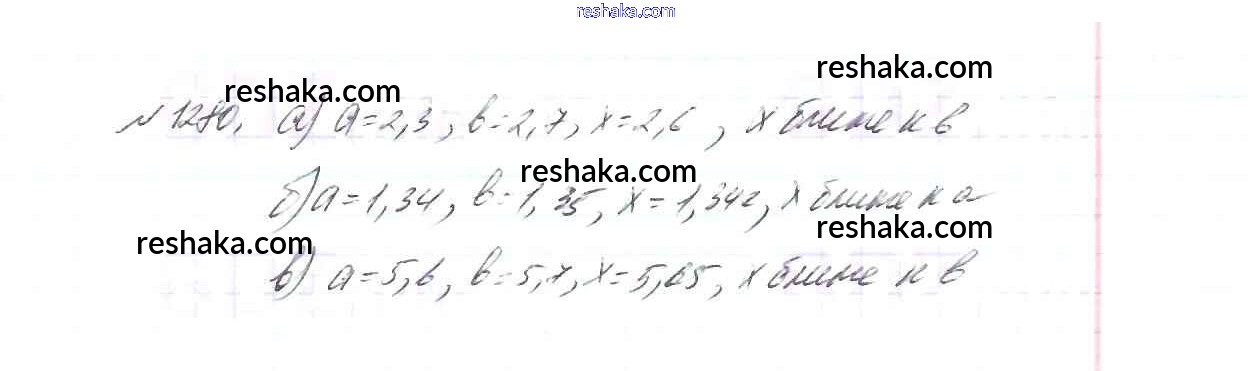 reshaka.com
reshaka.com
reshaka.com
№1280. а) a=2,3, в=2,7, x=2,6, x ближе к в
reshaka.com
б) a=1,34, в=1,35, x=1,342, x ближе к a
reshaka.com
reshaka.com
в) a=5,6, в=5,7, x=5,65, x ближе к в